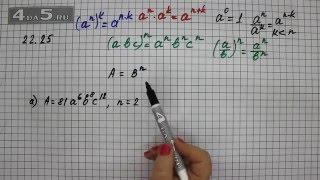 4DA5.RU
(aⁿ)ᵏ = aⁿ·ᵏ aⁿ · aᵏ = aⁿ⁺ᵏ a⁰ = 1 aⁿ = aᵏ
22.25 (abc)ⁿ = aⁿbⁿcⁿ (a/b)ⁿ = aⁿ/bⁿ
A = Bⁿ
a) A = 81a⁶b⁸c¹², n = 2